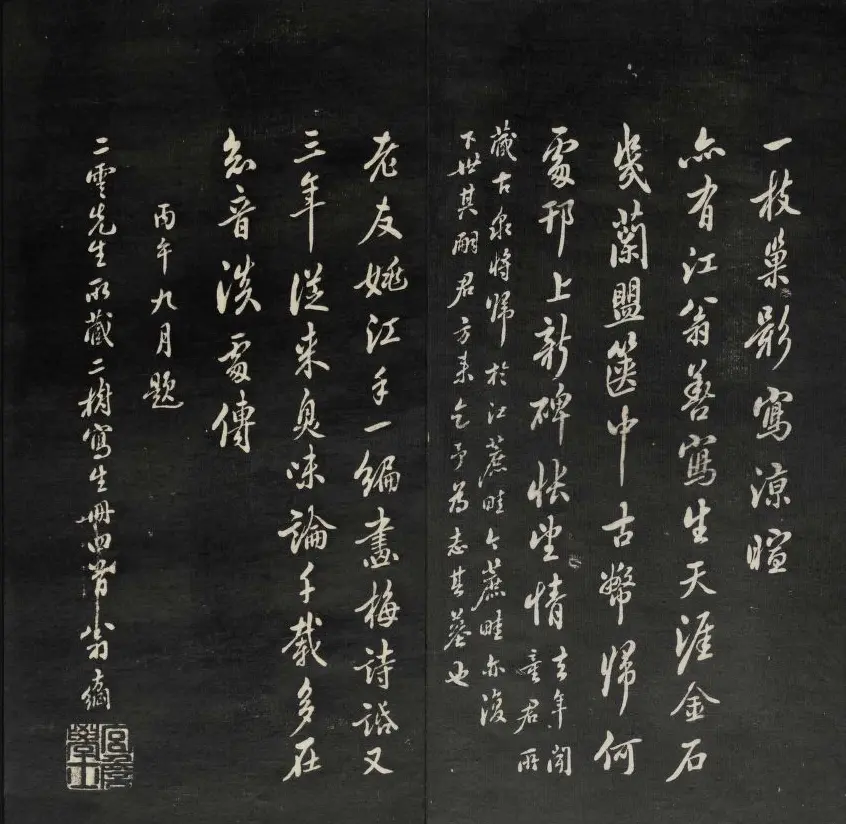 一枝巢影寫涼暄
亦有江翁善寫生天涯金石
幾蘭盟篋中古幣歸何
處邗上新碑悵望情去年聞
童君所
藏古泉將歸於江蔗畦今蔗畦亦復
下世其嗣君方來乞予為志其墓也
老友姚江手一編畫梅詩話又
三年從來臭味論千載多在
音淡處傳
丙午九月題
二雲先生所藏二樹寫生冊四翁方綱
宮詹學士